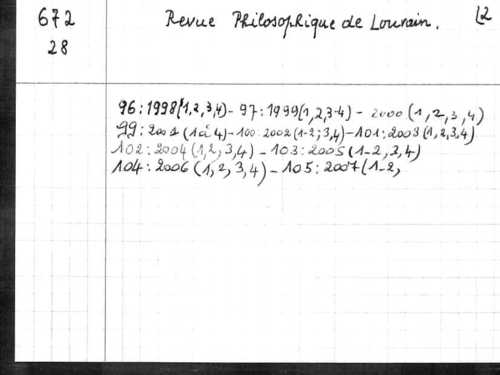 672
28
Revue Philosophique de Louvain.
L2
96:1998(1,2,3,4)-97:1999(1,2,3-4)-2000(1,2,3,4)
99:2001(1à4)-100:2002(1-2;3,4)-101:2003(1,2,3,4)
102:2004(1,2,3,4)-103:2005(1-2,3,4)
104:2006(1,2,3,4)-105:2007(1-2,